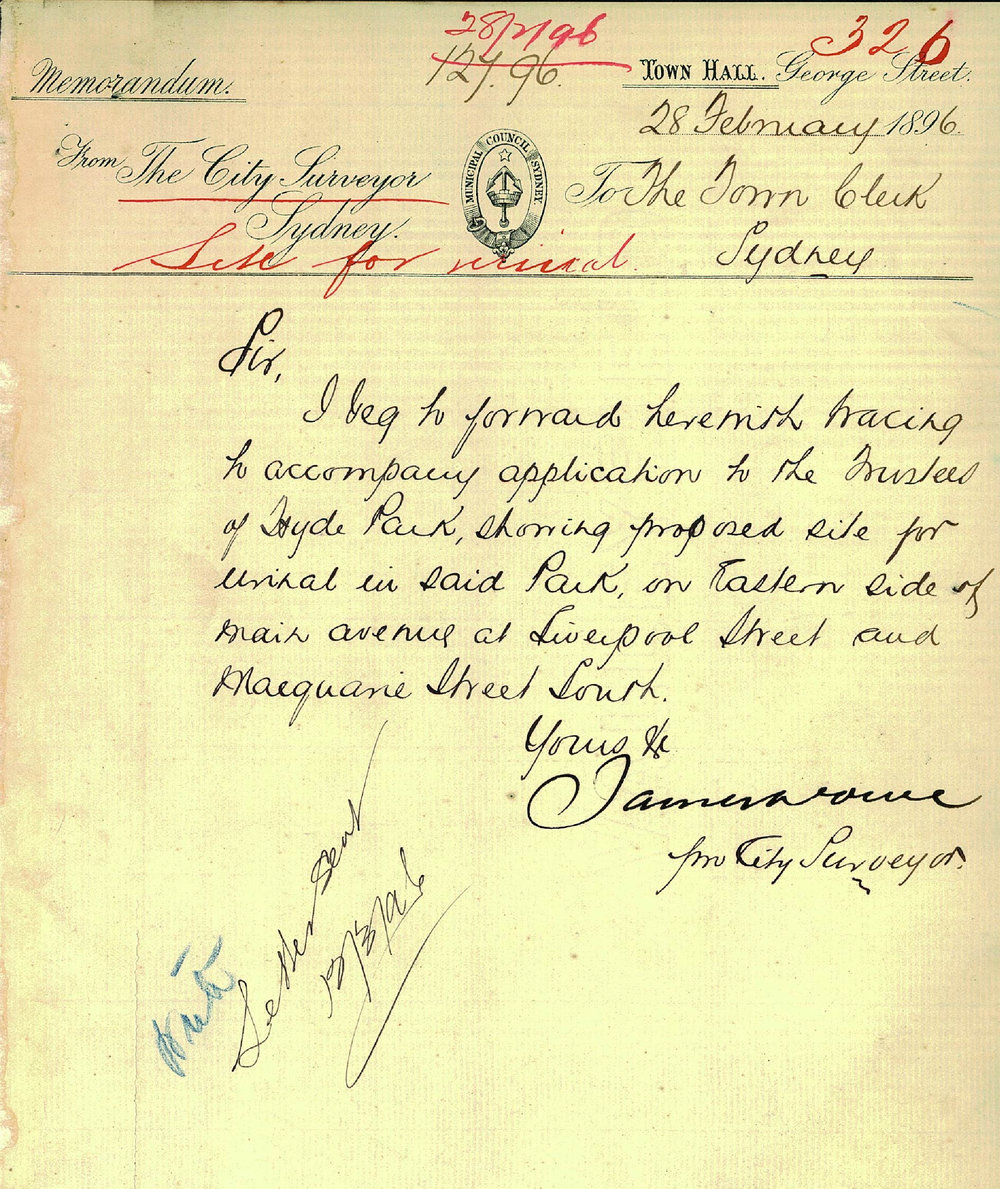 28/2/96
326
127.96.
Memorandum.
TOWN HALL. George Street.
28 February 1896.
From The City Surveyor
Sydney.
MUNICIPAL COUNCIL SYDNEY
To The Town Clerk
Sydney
Site for urinal.
Sir,
I beg to forward herewith tracing
to accompany application to the Trustees
of Hyde Park, showing proposed site for
urinal in said Park, on Eastern side of
main avenue at Liverpool Street and
Macquarie Street South.
Yours &c
James
pro City Surveyor.
Letter sent
13/3/96
Write